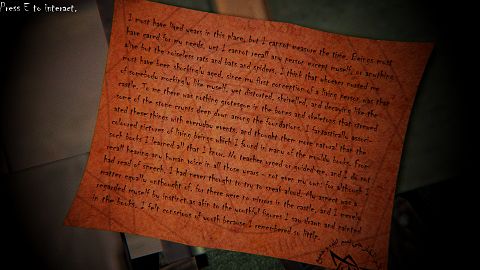 Press E to interact.
I must have lived years in this place, but I cannot measure the time. Beings must
have cared for my needs, yet I cannot recall any person except myself, or anything
alive but the noiseless rats and bats and spiders. I think that whoever nursed me
must have been shockingly aged, since my first conception of a living person was that
of somebody mockingly like myself, yet distorted, shrivelled, and decaying like the
castle. To me there was nothing grotesque in the bones and skeletons that strewed
some of the stone crypts deep down among the foundations. I fantastically associ-
ated these things with everyday events, and thought them more natural than the
coloured pictures of living beings which I found in many of the mouldy books. From
such books I learned all that I know. No teacher urged or guided me, and I do not
recall hearing any human voice in all those years - not even my own; for although I
had read of speech, I had never thought to try to speak aloud. My aspect was a
matter equally unthought of, for there were no mirrors in the castle, and I merely
regarded myself by instinct as akin to the youthful figures I saw drawn and painted
in the books. I felt conscious of youth because I remembered so little.